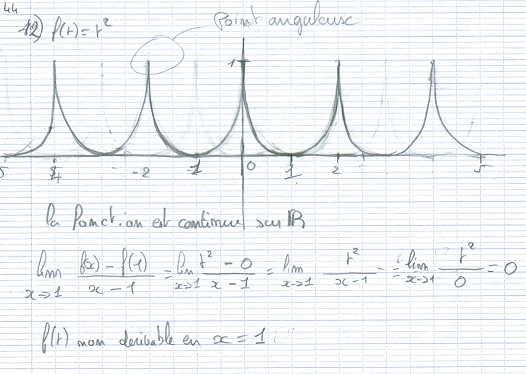 44
12) f(t) = t²
Point anguleuse
1
5 -4 -2 -1 0 1 2 5
la fonction est continue sur ℝ
lim x→1 f(x) - f(1) / x - 1 = lim x→1 t² - 0 / x - 1 = lim x→1 t² / x - 1 = lim x→1 t² / 0 = 0
f(t) non derivable en x = 1